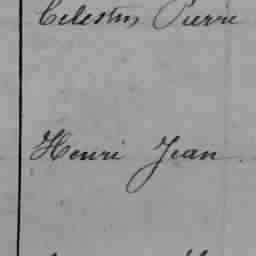 Celestin Pierre
Henri Jean